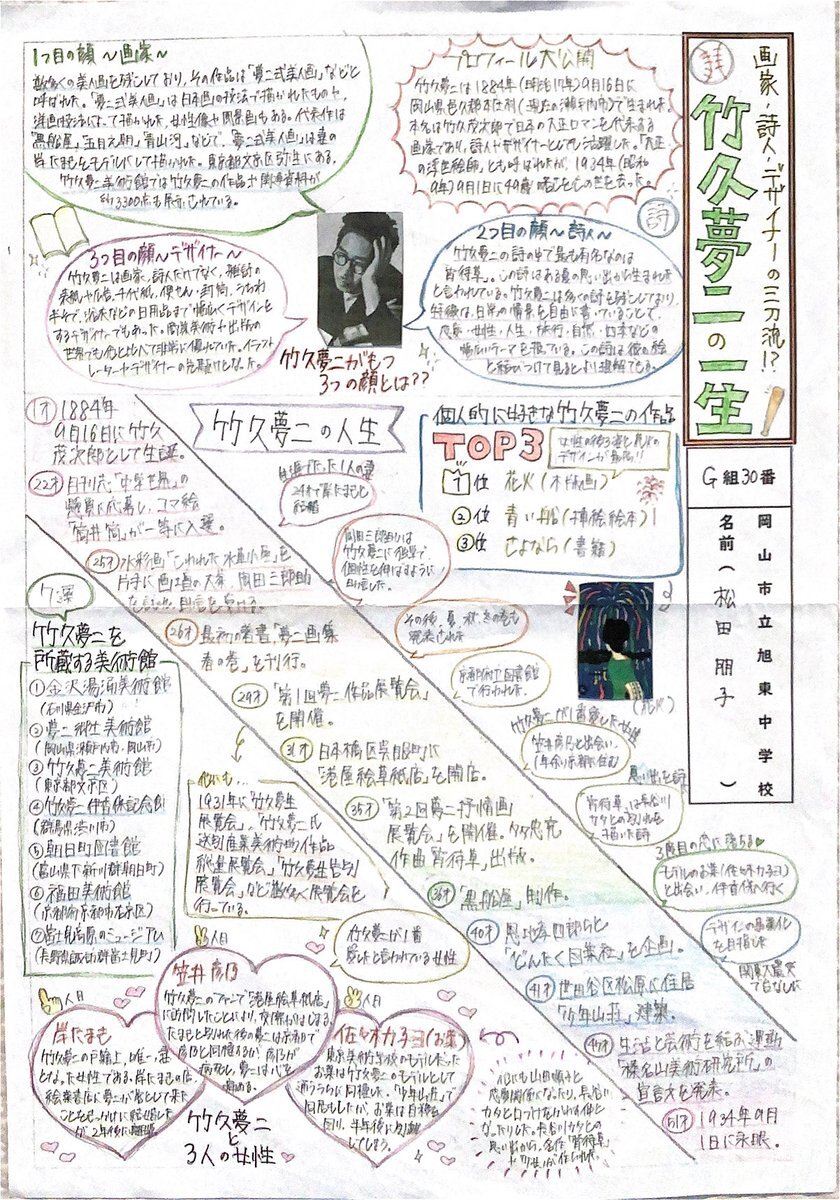 画家・詩人・デザイナーの三刀流!?
竹久夢二の一生
G組30番
岡山市立旭東中学校
名前(松田朋子)
プロフィール大公開
竹久夢二は1884年(明治17年)9月16日に
岡山県邑久郡本庄村(現在の瀬戸内市)で生まれた。
本名は竹久茂次郎で日本の大正ロマンを代表する
画家であり、詩人やデザイナーとしても活躍した。「大正
の浮世絵師」とも呼ばれたが、1934年(昭和
9年)9月1日に49歳
この世を去った。
1つ目の顔 〜画家〜
数多くの美人画を残しており、その作品は「夢二式美人画」などと
呼ばれた。「夢二式美人画」は日本画の技法で描かれたものや、
洋画技法によって描かれた、女性像や
もある。代表作は
「黒船屋」、
「青山河」などで、「夢二式美人画」は妻の
岸たまきをモデルにして描かれた。東京都文京区弥生にある、
竹久夢二美術館では竹久夢二の作品や関連資料が
約3300点も展示されている。
詩
2つ目の顔〜詩人〜
竹久夢二の詩の中で最も有名なのは
「宵待草」。この詩はある夏の思い出から生まれた
と言われている。竹久夢二は多くの詩を残しており、
特徴は、日常の情景を自由に書いていることで、
恋愛・女性・人生・旅行・自然・
などの
幅広いテーマを扱っている。この詩は彼の絵
と結びつけて見るとより理解できる。
3つ目の顔〜デザイナー〜
竹久夢二は画家、詩人だけでなく、雑誌の
表紙や広告、千代紙、便せん・封筒、うちわ
半そで、浴衣などの日用品まで幅広くデザインを
するデザイナーでもあった。商業美術や出版の
世界でも
非常に優れていた。イラスト
レーターやデザイナーの先駆けとなった。
竹久夢二がもつ
3つの顔とは??
竹久夢二の人生
1才 1884年
9月16日に竹久
茂次郎として生誕。
22才 月刊心「中学世界」の
懸賞に応募し、コマ絵
「筒井筒」が一等に入選。
24才で岸たまきと
結婚
25才 水彩画「こわれた水車小屋」を
片手に
岡田三郎助
を訪ね、助言を受ける。
岡田三郎助は
竹久夢二に
個性を伸ばすように
助言した。
26才 最初の著書「夢二画集
春の巻」を刊行。
その後、夏、秋、冬の巻も
発売された
29才 「第1回夢二作品展覧会」
を開催。
京都府立図書館
で行われた。
31才 日本橋区呉服町に
「港屋絵草紙店」を開店。
竹久夢二が1番愛した女性
笠井彦乃と出会い、
35才 「第2回夢二抒情画
展覧会」を開催。多忠亮
作曲「宵待草」出版。
思い出を詩に
「宵待草」は長谷川
カタとの別れを
描いた詩
36才 「黒船屋」制作。
3度目の恋に落ちる♥
モデルのお葉(佐々木カ子ヨ)
と出会い、伊香保へ行く
40才 恩地孝四郎らと
「どんたく図案社」を企画。
デザインの産業化
を目指した
関東大震災
で台なしに
41才 世田谷区松原に住居
「少年山荘」建築。
生活と芸術を結ぶ運動
「榛名山美術研究所」の
宣言文を発表。
51才 1934年9月
1日に永眠。
個人的に好きな竹久夢二の作品
TOP3
女性の後ろ姿と花火の
デザインが
1位 花火(木版画)
2位 青い船(挿絵絵本)
3位 さよなら(書籍)
(花火)
7選
竹久夢二を
所蔵する美術館
①金沢湯涌美術館
(石川県金沢市)
②夢二郷土美術館
(岡山県瀬戸内市、岡山市)
③竹久夢二美術館
(東京都文京区)
④竹久夢二伊香保記念館
(群馬県渋川市)
⑤朝日町図書館
(富山県下新川郡朝日町)
⑥福田美術館
(京都府京都市右京区)
⑦富士見高原のミュージアム
(長野県諏訪郡富士見町)
他にも…
1931年に「竹久夢二
展覧会」、「竹久夢二氏
送別産業美術的作品
総量展覧会」、「竹久夢二告別
展覧会」など数多く展覧会を
行っている。
竹久夢二が1番
愛したと言われている女性
1人目
岸たまき
竹久夢二の戸籍上、唯一、妻
となった女性である。岸たまきの店、
絵葉書店に夢二が客として来た
ことをきっかけに結婚した
が、2年後に離婚。
2人目
笠井彦乃
竹久夢二のファンで「港屋絵草紙店」
に訪問したことにより、交際がはじまる。
たまきと別れた後の夢二は京都で
彦乃と同棲するが、彦乃が
病死し、夢二は心を
痛める。
3人目
佐々木カ子ヨ(お葉)
東京美術学校のモデルだった
お葉は竹久夢二のモデルとして
通ううちに同棲した。「少年山荘」で
同居もしたが、お葉は自殺を
図り、半年後に別離
してしまう。
竹久夢二
と
3人の女性
他にも山田順子と
恋愛関係になったり、長谷川
カタと
なったりした。長谷川カタとの
思い出から、名作「宵待草」